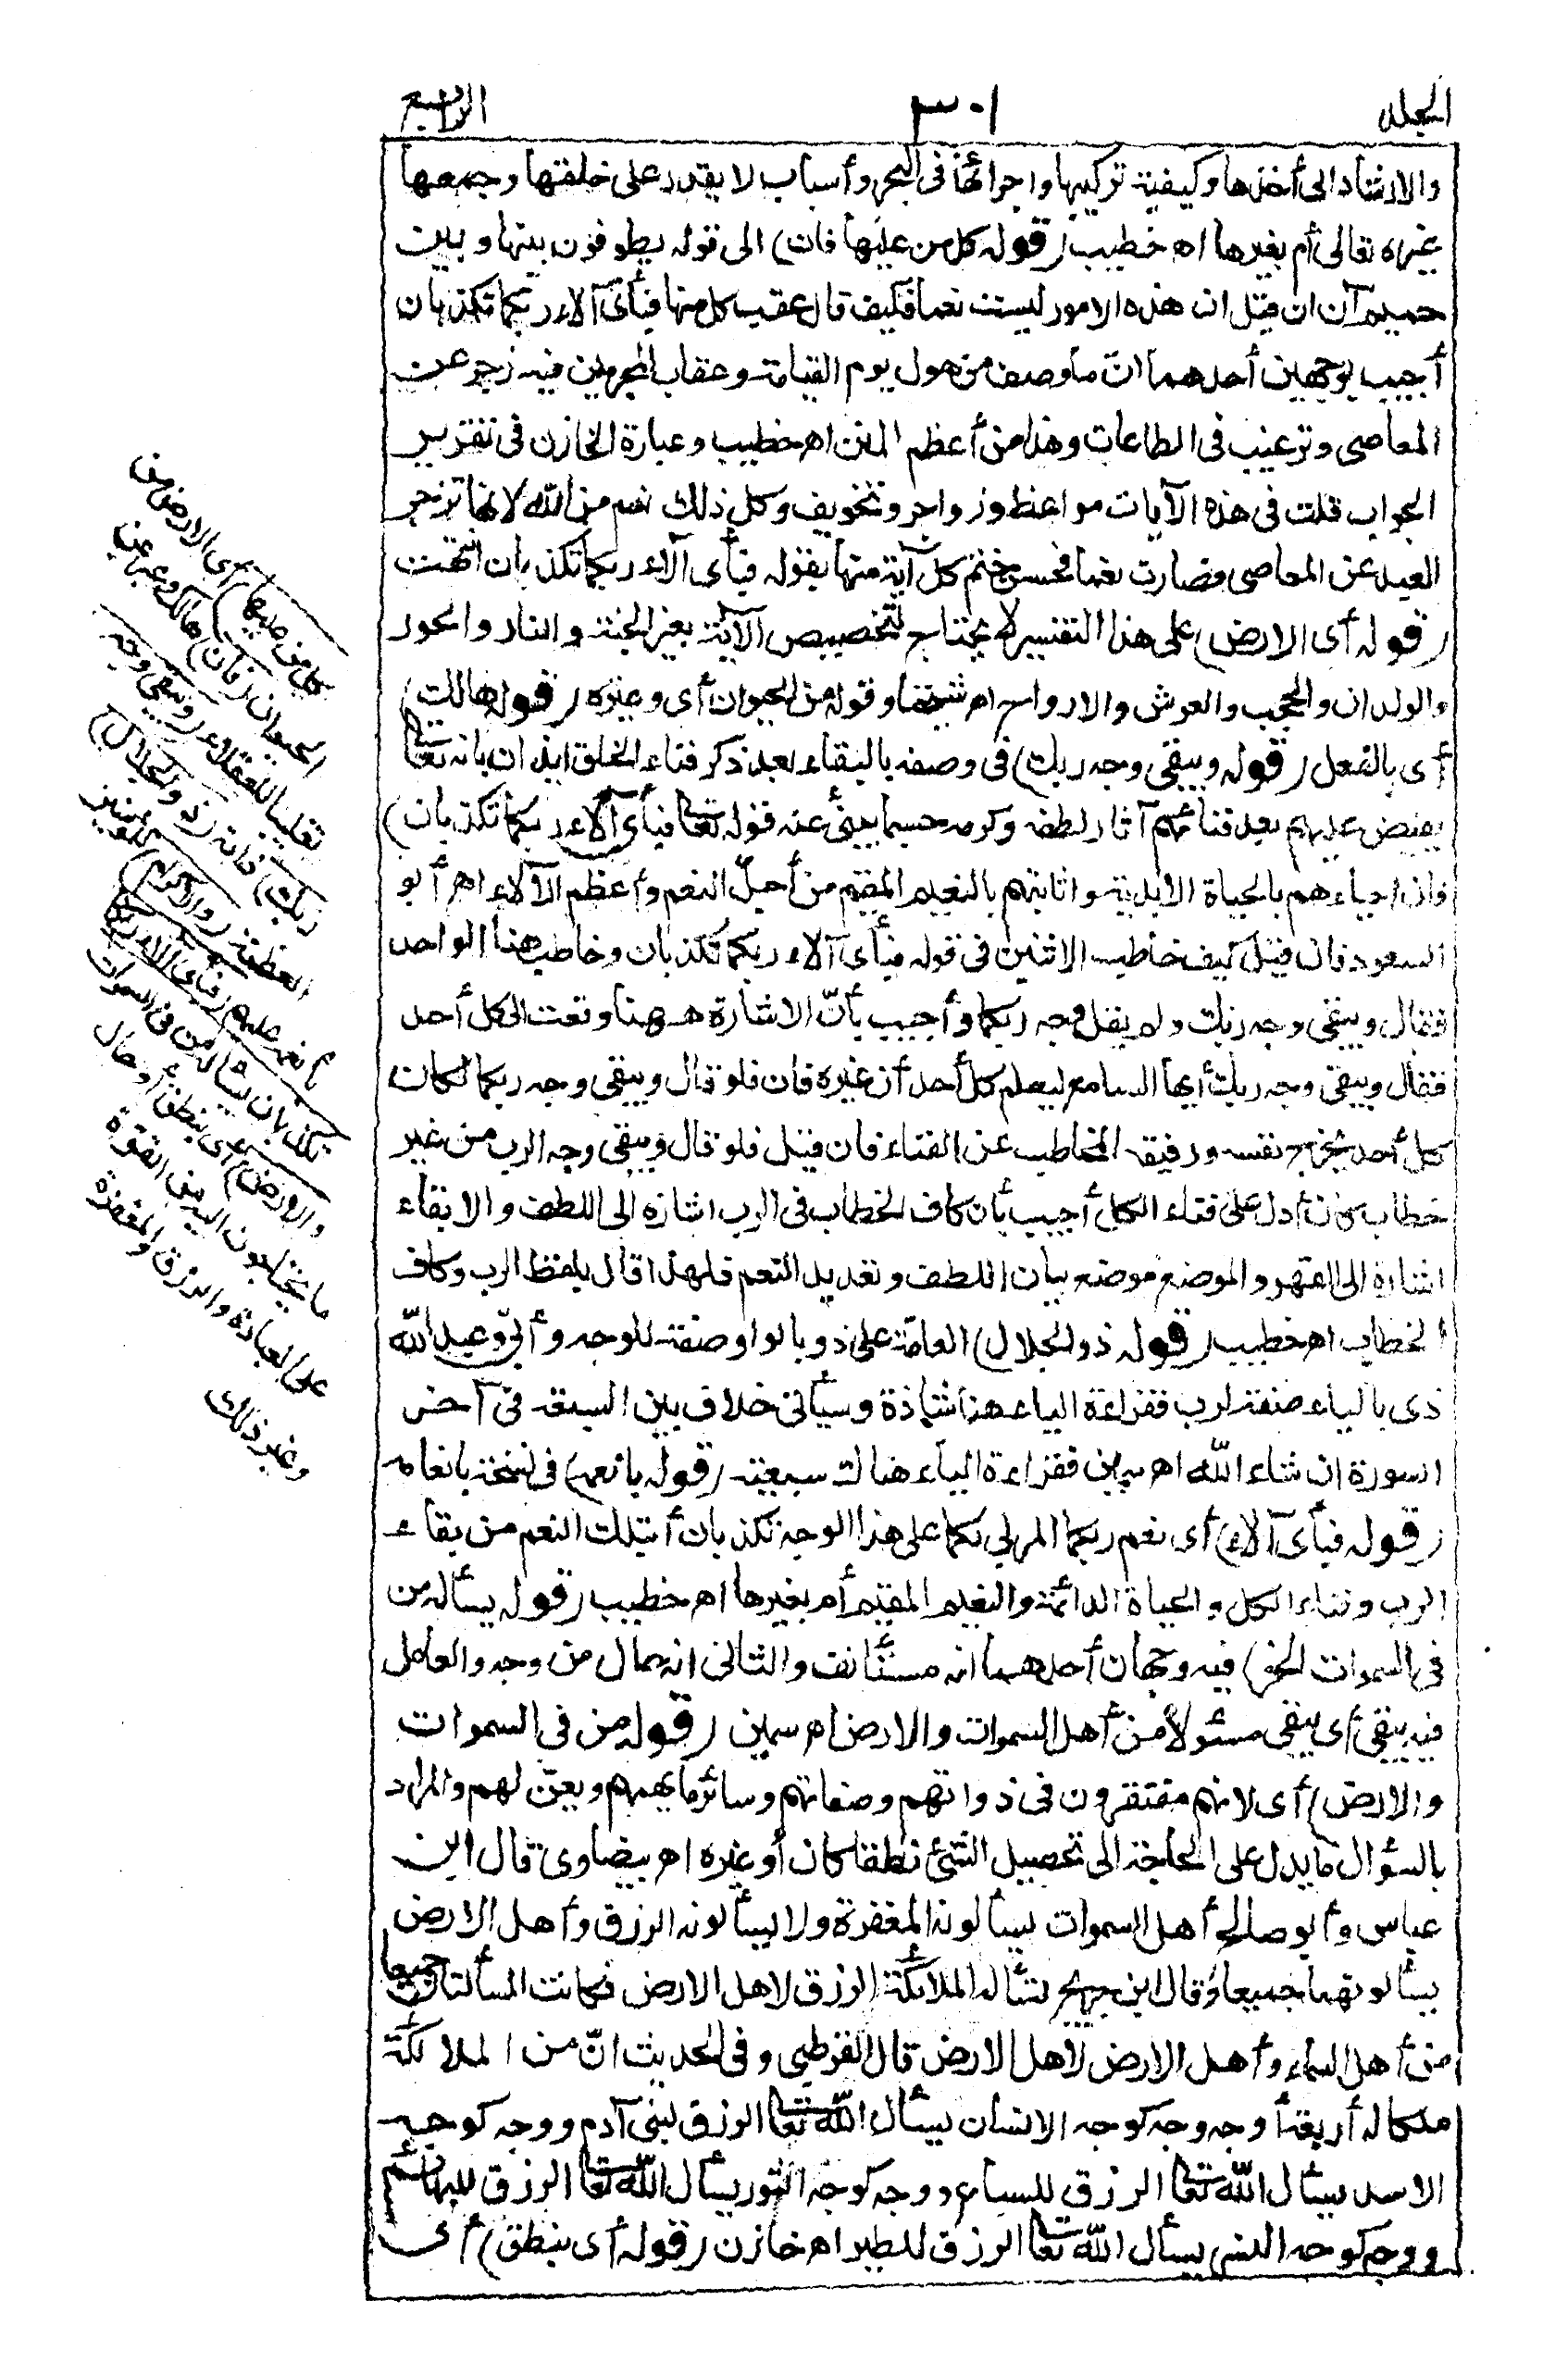 الجلد
٣٠١
الرابع
والارشاد الى أخذها وكيفية تركيبها واجرائها فى البحر وأسباب لا يقدر على خلقتها وجمعها
غيره تعالى أم بغيرها اه خطيب (قوله كل من عليها فان) الى قوله يطوفون بينها وبين
حميم آن ان قيل ان هذه الامور ليست نعما فكيف قال عقب كل منها فبأى آلاء ربكما تكذبان
أجيب بوجهين أحدهما انّ ما وصف من هول يوم القيامة وعقاب المجرمين فيه زجر عن
المعاصى وترغيب فى الطاعات وهذا من أعظم المنن اه خطيب وعبارة الخازن فى تقرير
الجواب قلت فى هذه الآيات مواعظ وزواجر وتخويف وكل ذلك نعم من الله لانها تزجر
العبد عن المعاصى فصارت نعما فحسن ختم كل آية منها بقوله فبأى آلاء ربكما تكذبان انتهت
(قوله أى الارض) على هذا التفسير لا يحتاج لتخصيص الآية بغير الجنة والنار والحور
والولدان والحجب والعرش والارواح اه شيخنا وقوله من الحيوان أى وغيره (قوله هالك)
أى بالفعل (قوله ويبقى وجه ربك) فى وصفه بالبقاء بعد ذكر فناء الخلق ايذان بانه تعالى
يفيض عليهم بعد فنائهم آثار لطفه وكرمه حسبما ينبئ عنه قوله تعالى فبأى آلاء ربكما تكذبان)
فان احياءهم بالحياة الابدية واثابتهم بالنعيم المقيم من أجلّ النعم وأعظم الآلاء اهر أبو
السعود فان قيل كيف خاطب الاثنين فى قوله فبأى آلاء ربكما تكذبان وخاطب هنا الواحد
فقال ويبقى وجه ربك ولم يقل وجه ربكما وأجيب بأنّ الاشارة ههنا وقعت الى كل أحد
فقال ويبقى وجه ربك أيها السامع ليعلم كل أحد أن غيره فان فلو قال ويبقى وجه ربكما لكان
كل أحد يخرج نفسه ورفيقه المخاطب عن الفناء فان قيل فلو قال ويبقى وجه الرب من غير
خطاب كان أدل على فناء الكل أجيب بأن كاف الخطاب فى الرب اشارة الى اللطف والابقاء
اشارة الى القهر والموضع موضع بيان اللطف وتعديد النعم فلهذا قال بلفظ الرب وكاف
الخطاب اه خطيب (قوله ذو الجلال) العامّة على ذو بالواو صفة للوجه وأبىّ وعبد الله
ذى بالياء صفة لرب فقراءة الياء هنا شاذة وسيأتى خلاف بين السبعة فى آخر
السورة ان شاء الله اه سمين فقراءة الياء هنالك سبعية (قوله بانعمه) فى نسخة بانعامه
(قوله فبأى آلاء) أى نعم ربكما المربى لكما على هذا الوجه تكذبان أبتلك النعم من بقاء
الرب وفناء الكل والحياة الدائمة والنعيم المقيم أم بغيرها اه خطيب (قوله يسأله من
فى السموات الخ) فيه وجهان أحدهما انه مستأنف والثانى انه حال من وجه والعامل
فيه يبقى أى يبقى مسئولا من أهل السموات والارض اه سمين (قوله من فى السموات
والارض) أى لانهم مفتقرون فى ذواتهم وصفاتهم وسائر ما يهمهم ويعنّ لهم والمراد
بالسؤال ما يدل على الحاجة الى تحصيل الشئ نطقا كان أو غيره اه بيضاوى قال ابن
عباس وأبو صالح أهل السموات يسألونه المغفرة ولا يسألونه الرزق وأهل الارض
يسألونهما جميعا وقال ابن جريج تسأله الملائكة الرزق لاهل الارض فكانت المسألتان جميعا
من أهل السماء وأهل الارض لاهل الارض قال القرطبى وفى الحديث انّ من الملائكة
ملكا له أربعة أوجه وجه كوجه الانسان يسأل الله تعالى الرزق لبنى آدم ووجه كوجه
الاسد يسأل الله تعالى الرزق للسباع ووجه كوجه الثور يسأل الله تعالى الرزق للبهائم
ووجه كوجه النسر يسأل الله تعالى الرزق للطير اه خازن (قوله أى بنطق) أى
كل من عليها) أى الارض من
الحيوان (فان) هالك وعبر بمن
تغليبا للعقلاء (ويبقى وجه
ربك) ذاته (ذو الجلال)
العظمة (والاكرام) للمؤمنين
بأنعمه عليهم (فبأى آلاء ربكما
تكذبان يسأله من فى السموات
والارض) أى بنطق أو حال
ما يحتاجون اليه من القوة
على العبادة والرزق والمغفرة
وغير ذلك